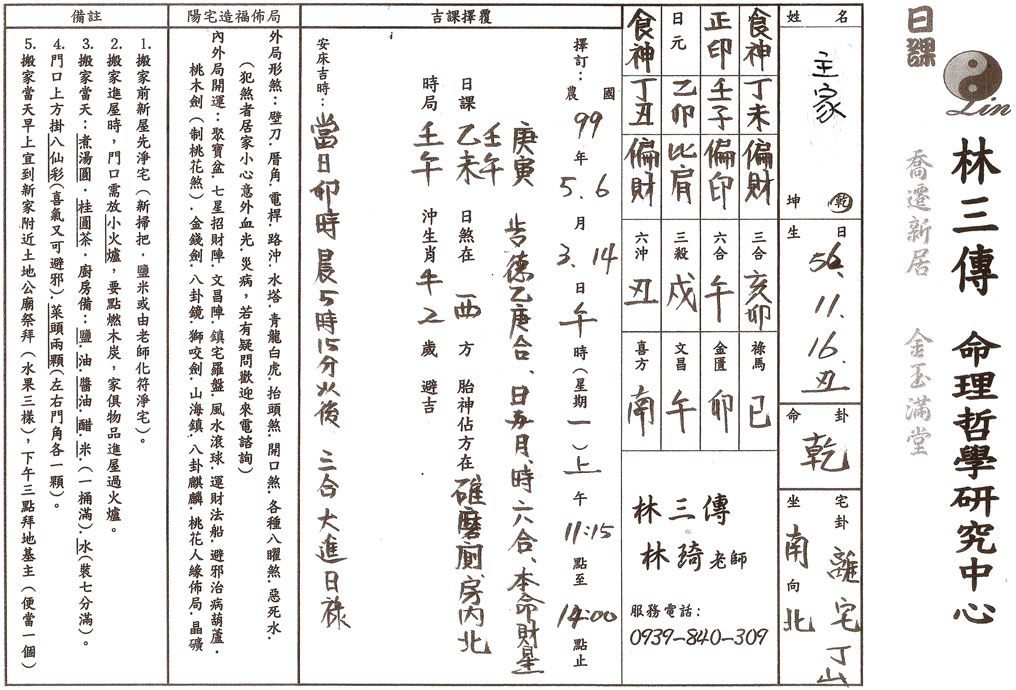 日課
Lin
林三傳 命理哲學研究中心
喬遷新居 金玉滿堂
姓名
主家
乾
坤
生日
56.11.16.丑
命卦
乾
宅卦
離宅丁山
坐南向北
食神
丁未
偏財
三合
亥卯
祿馬
巳
正印
壬子
偏印
六合
午
金匱
卯
日元
乙卯
比肩
三殺
戌
文昌
午
食神
丁丑
偏財
六沖
丑
喜方
南
林三傳
林琦老師
服務電話:
0939-840-309
吉課擇覆
擇訂:國農 99年 5.6月 3.14日 午時(星期一)上午11:15點至14:00點止
庚寅
壬午
歲德乙庚合、日月、時六合、本命財星
日課 乙未 日煞在 西 方 胎神佔方在 碓磨廁房內北
時局 壬午 沖生肖 牛 2 歲 避吉
安床吉時:當日卯時晨5時15分以後 三合大進日祿
陽宅造福佈局
外局形煞:壁刀.厝角.電桿.路沖.水塔.青龍白虎.抬頭煞.開口煞.各種八曜煞.惡死水.
(犯煞者居家小心意外血光.災病,若有疑問歡迎來電諮詢)
內外局開運:聚寶盆.七星招財陣.文昌陣.鎮宅羅盤.風水滾球.運財法船.避邪治病葫蘆.
桃木劍(制桃花煞).金錢劍.八卦鏡.獅咬劍.山海鎮.八卦麒麟.桃花人緣佈局.晶礦
備註
1. 搬家前新屋先淨宅(新掃把,鹽米或由老師化符淨宅)。
2. 搬家進屋時,門口需放小火爐,要點燃木炭,家俱物品進屋過火爐。
3. 搬家當天:煮湯圓.桂圓茶.廚房備:鹽.油.醬油.醋.米.(一桶滿).水(裝七分滿)。
4. 門口上方掛八仙彩(喜氣又可避邪).菜頭兩顆(左右門角各一顆)。
5. 搬家當天早上宜到新家附近土地公廟祭拜(水果三樣),下午三點拜地基主(便當一個)